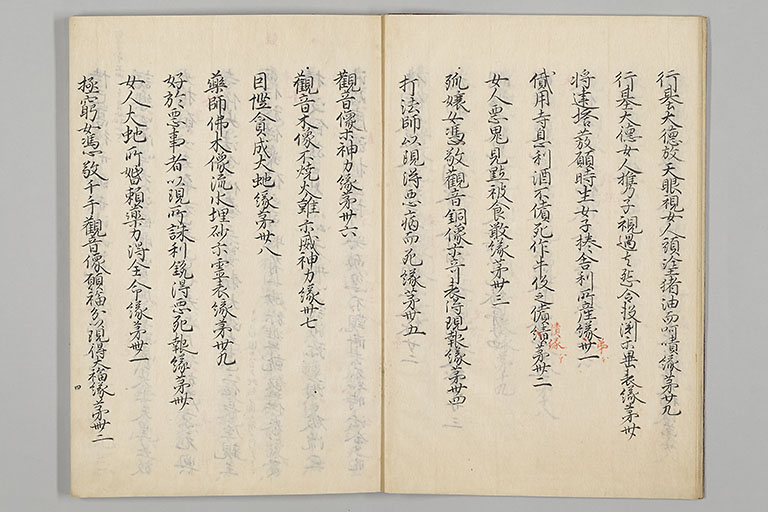 行基大徳放天眼視女人頭塗猪油而呵嘖縁苐廿九
行基大徳女人携子視過去怨令投渕示異表縁苐卅
将建塔發願時生女子捲舎利所産縁卅一
苐
貸用寺息利酒不償死作牛役之償績苐卅二
債縁
女人悪鬼見點被食散縁苐卅三
孤嬢女憑敬觀音銅像示竒表得現報縁苐卅四
打法師以現得悪病而死縁苐卅五
觀音像示神力縁苐卅六
觀音木像不焼火難示威神力縁卅七
因慳貪成大虵縁苐卅八
藥師佛木像流水埋砂示霊表縁苐卅九
好於悪事者以現所誅利鋭得悪死報縁苐卌
女人大虵所婚頼藥力得全命縁苐卌一
極窮女憑敬千手觀音像願福分以現得大福縁苐卌二
四